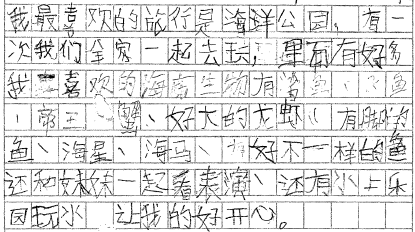 我最喜欢的旅行是海洋公园,有一
次我们全家一起去玩,里面有好多
我最喜欢的海底生物有鲨鱼、鱼
、帝王蟹、好大的龙虾、有脚的
鱼、海星、海马、有好不一样的鱼
还和妹妹一起看表演、还有水上乐
园玩水让我的好开心。